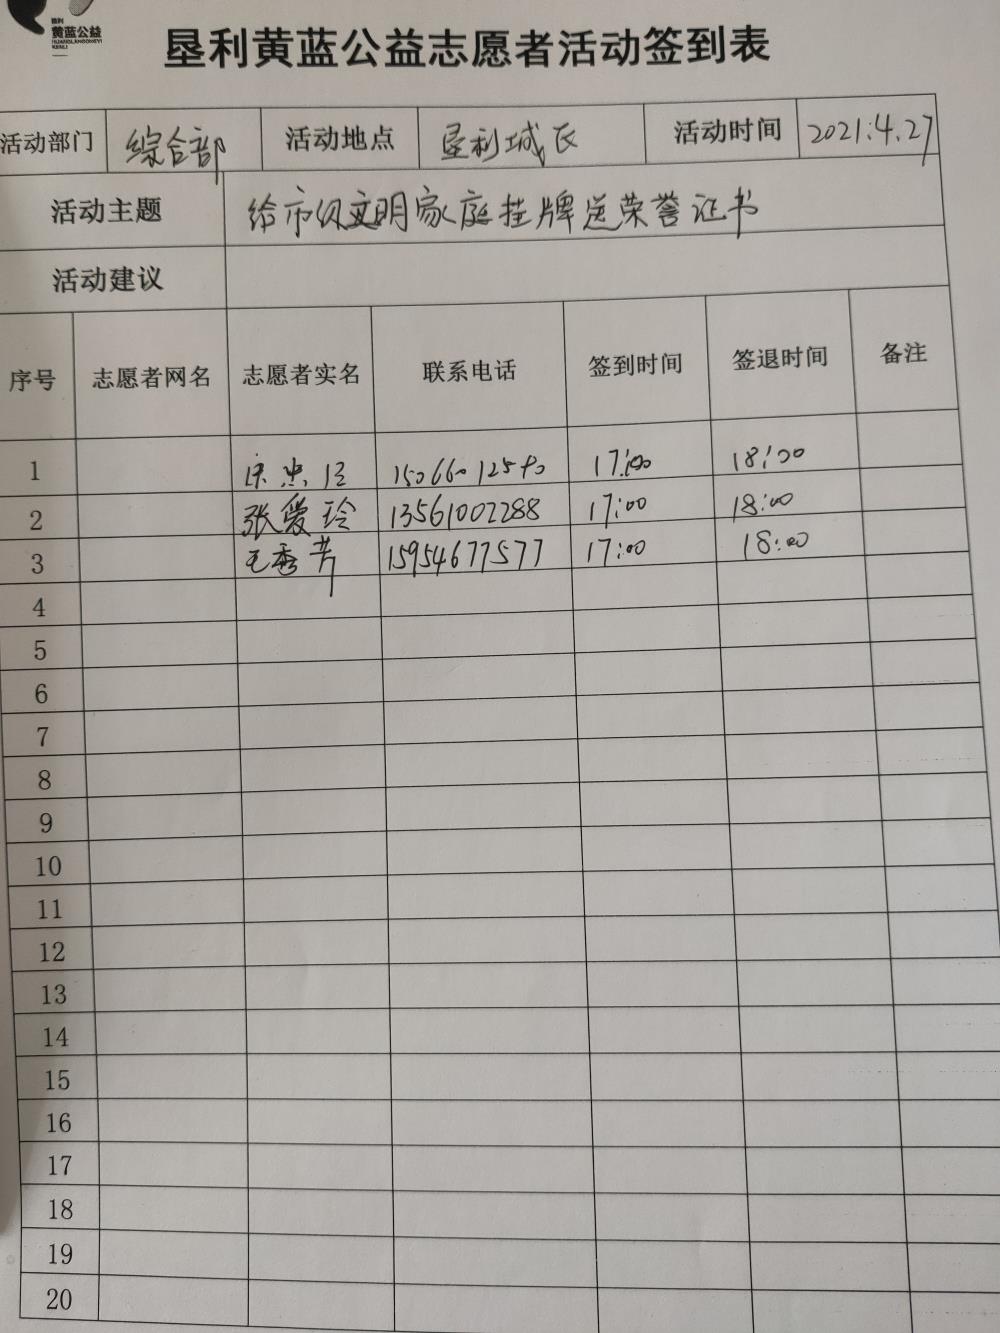 垦利
黄蓝公益
HUANGLANGONGYI
KENLI
垦利黄蓝公益志愿者活动签到表
活动部门 综合部 活动地点 垦利城区 活动时间 2021.4.27
活动主题 给市级文明家庭挂牌送荣誉证书
活动建议
序号 志愿者网名 志愿者实名 联系电话 签到时间 签退时间 备注
1 17:00 18:00
2 张爱玲 13561002288 17:00 18:00
3 王秀芳 15954677577 17:00 18:00
4
5
6
7
8
9
10
11
12
13
14
15
16
17
18
19
20